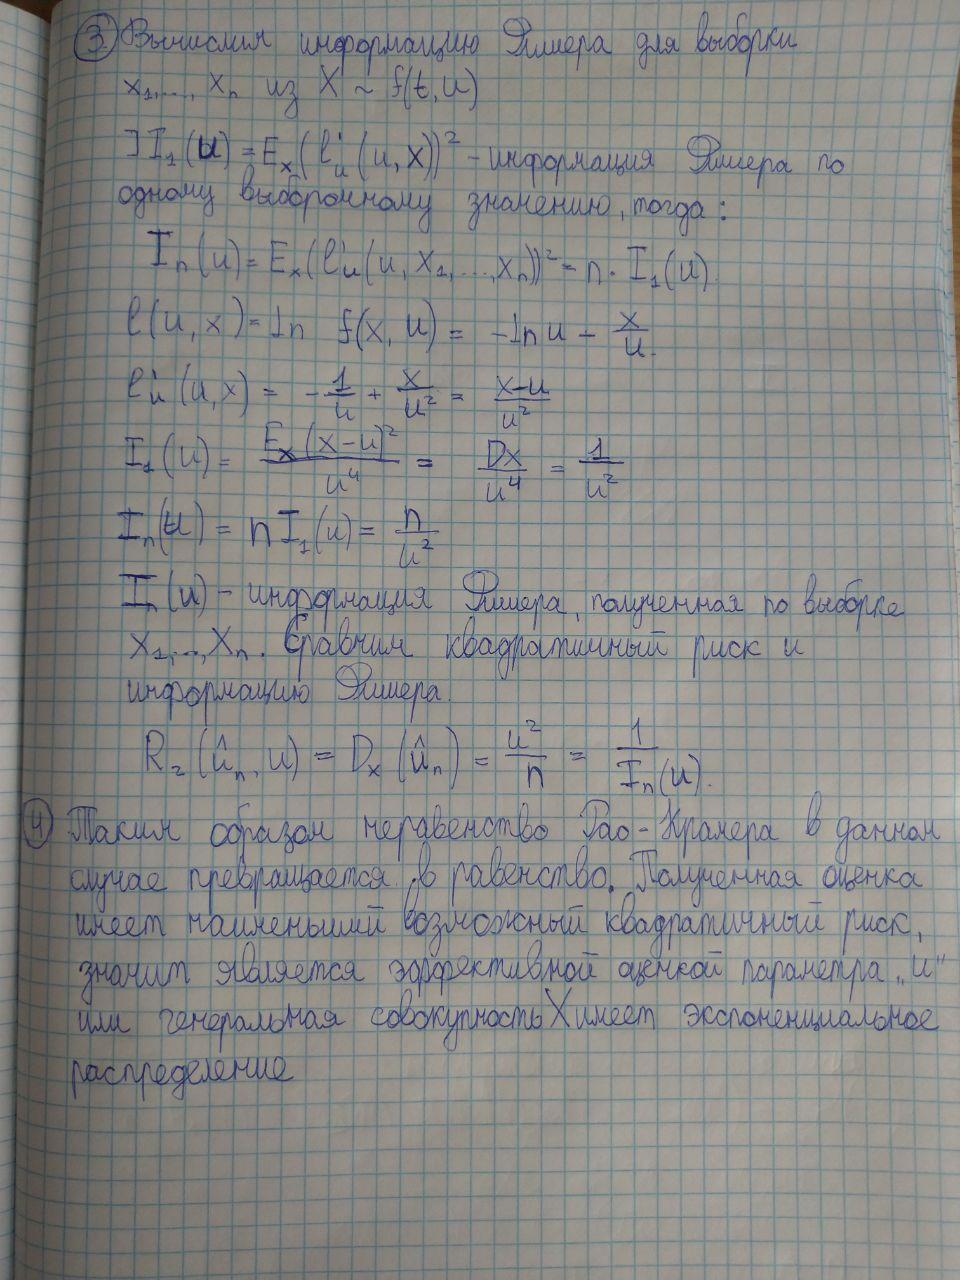 3. Вычислим информацию Фишера для выборки
x₁,..., xₙ из X ~ f(t, u)
] I₁(u) = Eₓ(l'ᵤ(u, x))² - информация Фишера по
одному выборочному значению, тогда:
Iₙ(u) = Eₓ(l'ᵤ(u, x₁, ..., xₙ))² = n · I₁(u).
l(u, x) = ln f(x, u) = -ln u - x/u.
l'ᵤ(u, x) = -1/u + x/u² = (x-u)/u²
I₁(u) = Eₓ(x-u)²/u⁴ = Dx/u⁴ = 1/u²
Iₙ(u) = n I₁(u) = n/u²
Iₙ(u) - информация Фишера, полученная по выборке
x₁,..,xₙ. Сравним квадратичный риск и
информацию Фишера.
R₂(ûₙ, u) = Dₓ(ûₙ) = u²/n = 1/Iₙ(u).
4 Таким образом неравенство Рао-Крамера в данном
случае превращается в равенство. Полученная оценка
имеет наименьший возможный квадратичный риск,
значит является эффективной оценкой параметра „u"
или генеральная совокупность X имеет экспоненциальное
распределение